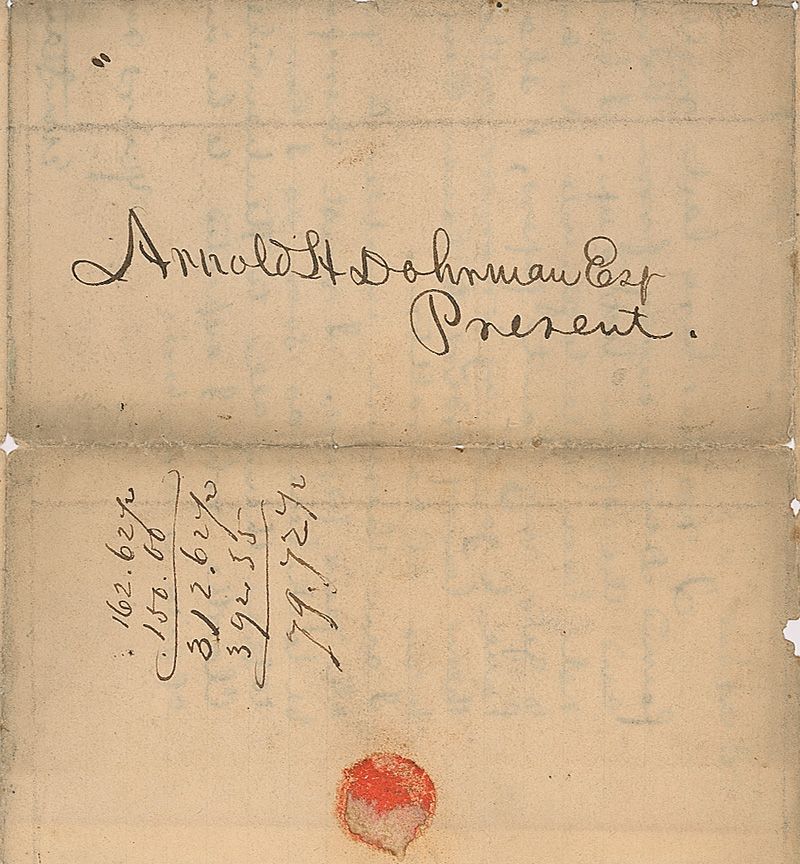 Arnold H Dohrman Esqr
Present.
162.62½
150.00
312.62½
392.35
79.72½